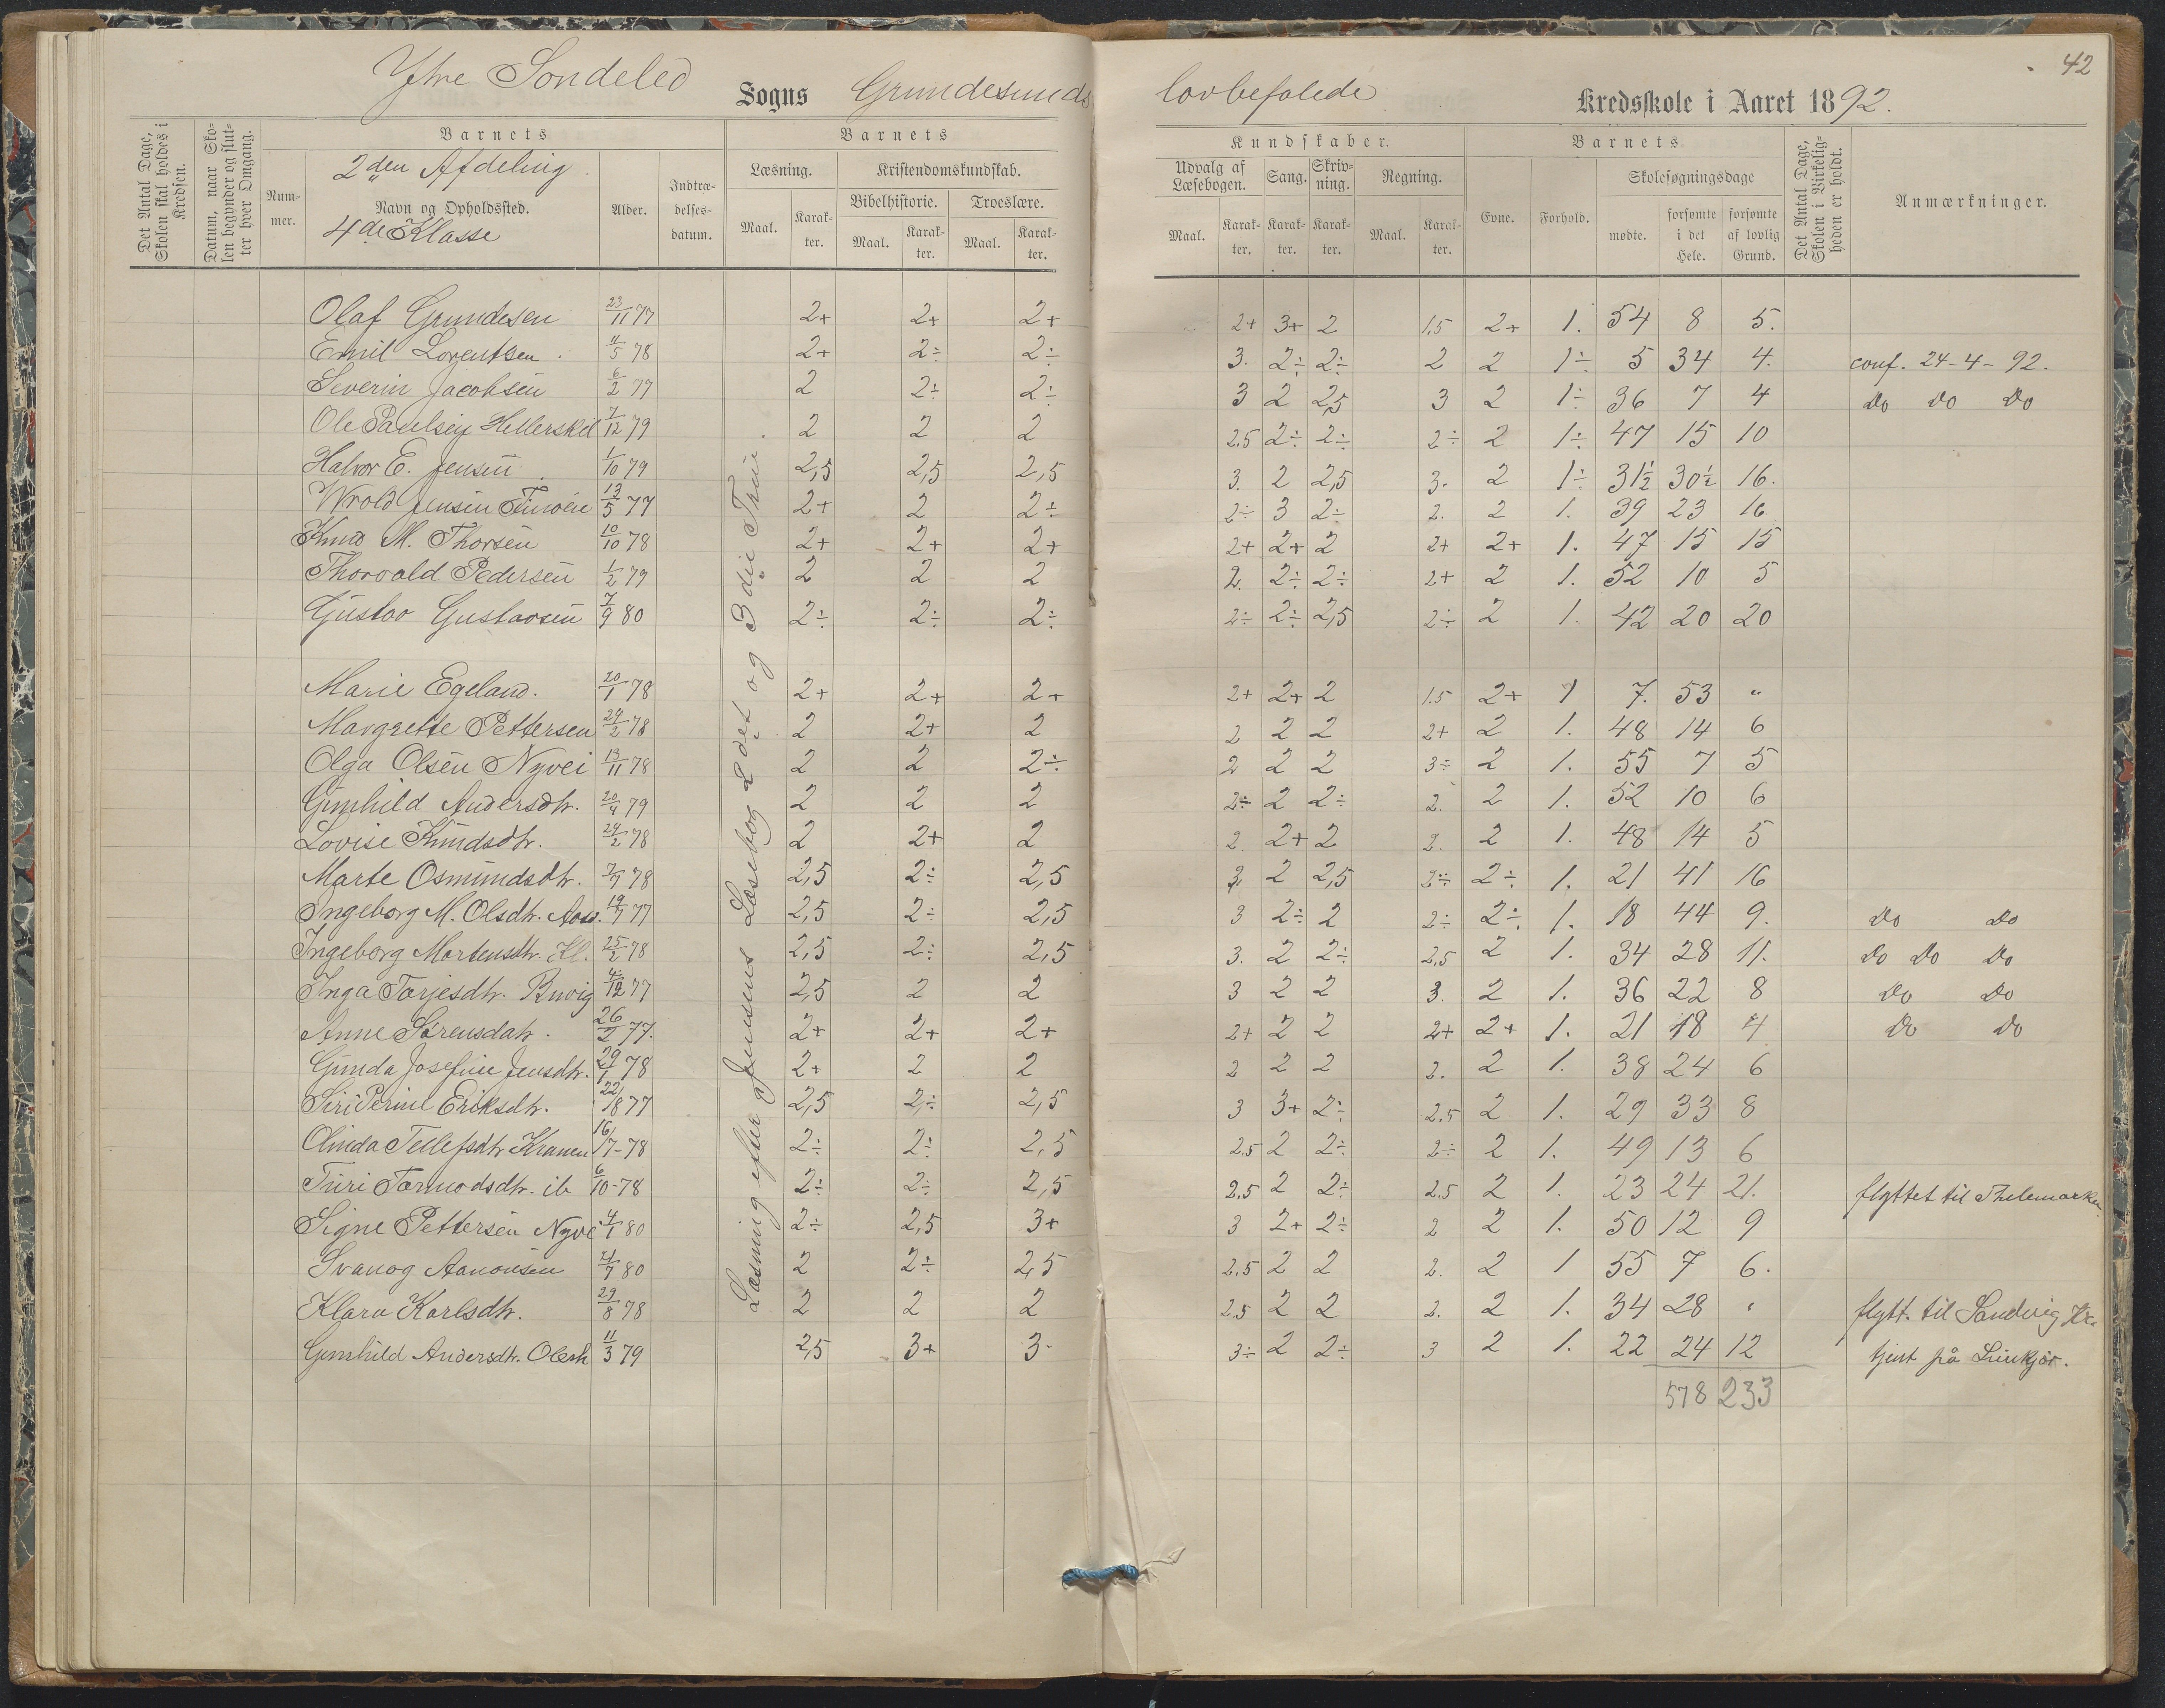 42
Ytre Söndeled Sogns Grundesunds lovbefalede Kredsskole i Aaret 1892.
Det Antal Dage, Skolen skal holdes i Kredsen.
Datum, naar Skolen begynder og slutter hver Omgang.
Barnets
Nummer.
2den Afdeling
Navn og Opholdssted.
4de Klasse
Alder.
Indtrædelsesdatum.
Barnets Kundskaber.
Læsning.
Maal. Karakter.
Kristendomskundskab.
Bibelhistorie. Troeslære.
Maal. Karakter. Maal. Karakter.
Udvalg af Læsebogen. Sang. Skrivning. Regning.
Maal. Karakter. Karakter. Karakter. Maal. Karakter.
Barnets
Evne. Forhold.
Skolesøgningsdage
mødte. forsømte i det Hele. forsømte af lovlig Grund.
Det Antal Dage, Skolen i Virkeligheden er holdt.
Anmærkninger.
Læsning efter Jensens Læsebog 2det og 3die Trin
Olaf Grundesen 23/11 77 2+ 2+ 2+ 2+ 3+ 2 1,5 2+ 1. 54 8 5.
Emil Lorentsen. 11/5 78 2+ 2÷ 2÷ 3. 2÷ 2÷ 2 2 1÷ 5 34 4. conf. 24-4-92.
Severin Jacobsen 6/2 77 2 2÷ 2÷ 3 2 2,5 3 2 1÷ 36 7 4 Do Do Do
Ole Paulsen Hellerskil 7/12 79 2 2 2 2.5 2÷ 2÷ 2÷ 2 1÷ 47 15 10
Halvor E. Jensen 1/10 79 2,5 2,5 2,5 3. 2 2,5 3. 2 1÷ 31½ 30½ 16.
Wrold Jensen 13/5 77 2+ 2 2÷ 2÷ 3 2÷ 2. 2 1. 39 23 16
Knud M. Thorsen 10/10 78 2+ 2+ 2+ 2+ 2+ 2 2+ 2+ 1. 47 15 15
Thorvald Pedersen 1/2 79 2 2 2 2. 2÷ 2÷ 2+ 2 1. 52 10 5
Gustav Gustavsen 7/9 80 2÷ 2÷ 2÷ 2÷ 2÷ 2,5 2÷ 2 1. 42 20 20
Marie Egeland. 20/1 78 2+ 2+ 2+ 2+ 2+ 2 1.5 2+ 1 7. 53 "
Margrette Pettersen 24/2 78 2 2+ 2 2 2 2 2+ 2 1. 48 14 6
Olga Olsen Nyvei 13/11 78 2 2 2÷ 2 2 2 3÷ 2 1. 55 7 5
Gunhild Andersdtr. 20/4 79 2 2 2 2÷ 2 2÷ 2. 2 1. 52 10 6
Lovise Knudsdtr. 24/2 78 2 2+ 2 2. 2+ 2 2. 2 1. 48 14 5
Marte Osmundsdtr. 7/7 78 2,5 2÷ 2,5 3. 2 2,5 2÷ 2÷ 1. 21 41 16
Ingeborg M. Olsdtr. 19/7 77 2,5 2÷ 2,5 3 2÷ 2 2÷ 2÷ 1. 18 44 9. Do Do
Ingeborg Mortensdtr. Kl. 25/2 78 2,5 2÷ 2,5 3. 2 2÷ 2,5 2 1. 34 28 11. Do Do Do
Inga Tarjesdtr. Buvig 4/12 77 2,5 2 2 3 2 2 3. 2 1. 36 22 8 Do Do
Anne Sørensdatr. 26/2 77. 2+ 2+ 2+ 2+ 2 2 2+ 2+ 1. 21 18 4 Do Do
Gunda Josefine Jensdtr. 29/1 78 2+ 2 2 2 2 2 2. 2 1. 38 24 6
Siri Perine Eriksdtr. 22/8 77 2,5 2÷ 2,5 3 3+ 2÷ 2,5 2 1. 29 33 8
Olinda Tellefsdtr Kranen 16/7-78 2÷ 2÷ 2,5 2.5 2 2÷ 2÷ 2 1. 49 13 6
Turi Tormodsdtr. ib 6/10-78 2÷ 2÷ 2,5 2.5 2 2÷ 2.5 2 1. 23 24 21. flyttet til Thelemarken.
Signe Pettersen Nyvei 4/1 80 2÷ 2,5 3+ 3 2+ 2÷ 2 2 1. 50 12 9
Svanog Aanonsen 21/7 80 2 2÷ 2,5 2.5 2 2 2. 2 1 55 7 6.
Klara Karlsdtr. 29/8 78 2 2 2 2.5 2 2 2. 2 1. 34 28 " flytt. til Sandvig Kr.
Gunhild Andersdtr. 11/3 79 2,5 3+ 3- 3÷ 2 2÷ 3 2 1. 22 24 12 tjent på Linkjør.
578 233